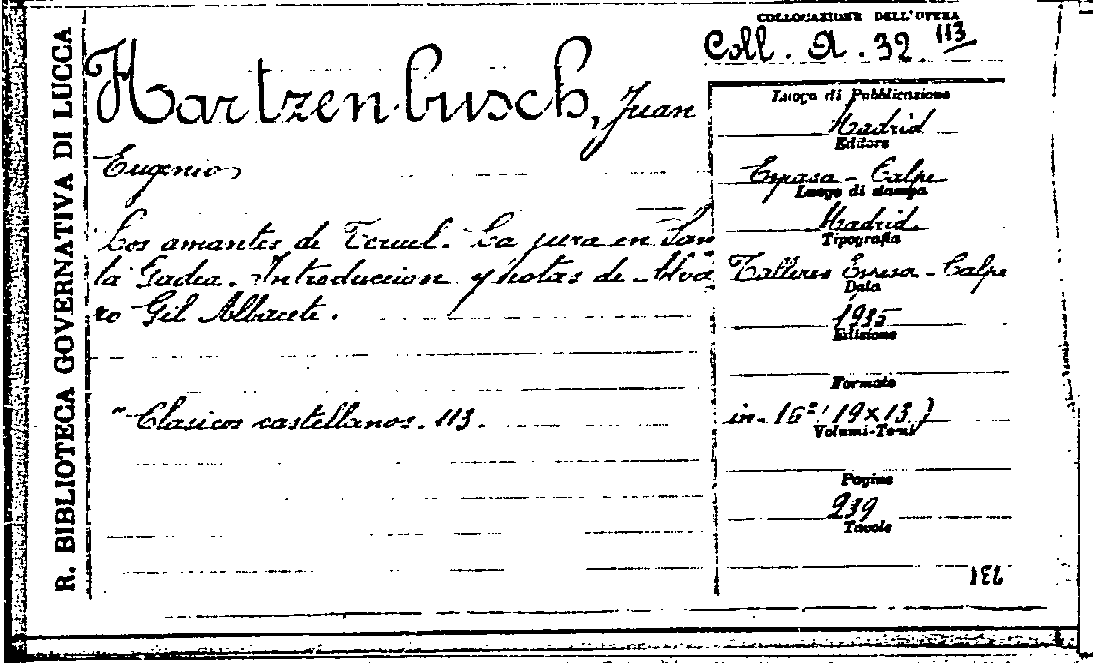 R. BIBLIOTECA GOVERNATIVA DI LUCCA
COLLOCAZIONE DELL'OPERA
Coll. A. 32. 113
Hartzenbusch, Juan
Eugenio
Los amantes de Teruel. La jura en San
ta Gadea. Introduccion y notas de Alva
ro Gil Albacete.
"Clasicos castellanos. 113.
Luogo di Pubblicazione
Madrid
Editore
Espasa - Calpe
Luogo di stampa
Madrid.
Tipografia
Talleres Espasa - Calpe
Data
1935
Edizione
Formato
in-16º (19×13)
Volumi-Tomi
Pagine
239
Tavole